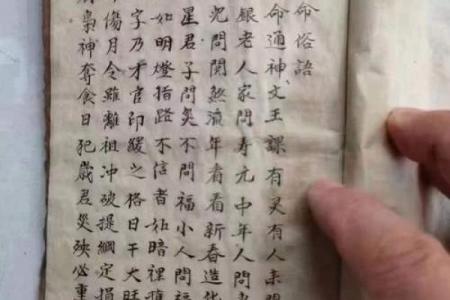 命俗語
命通神文王課有灵有人來問
銀老人家問寿元中年人問
兒問関煞流年看看新春造化
星君子問災不問福小人問福
如明燈指路不信者如暗裡
字乃才官印綬之格日干大旺
傷月令雖離祖冲破提綱定損
梟神奪食日犯歲君災殃必重